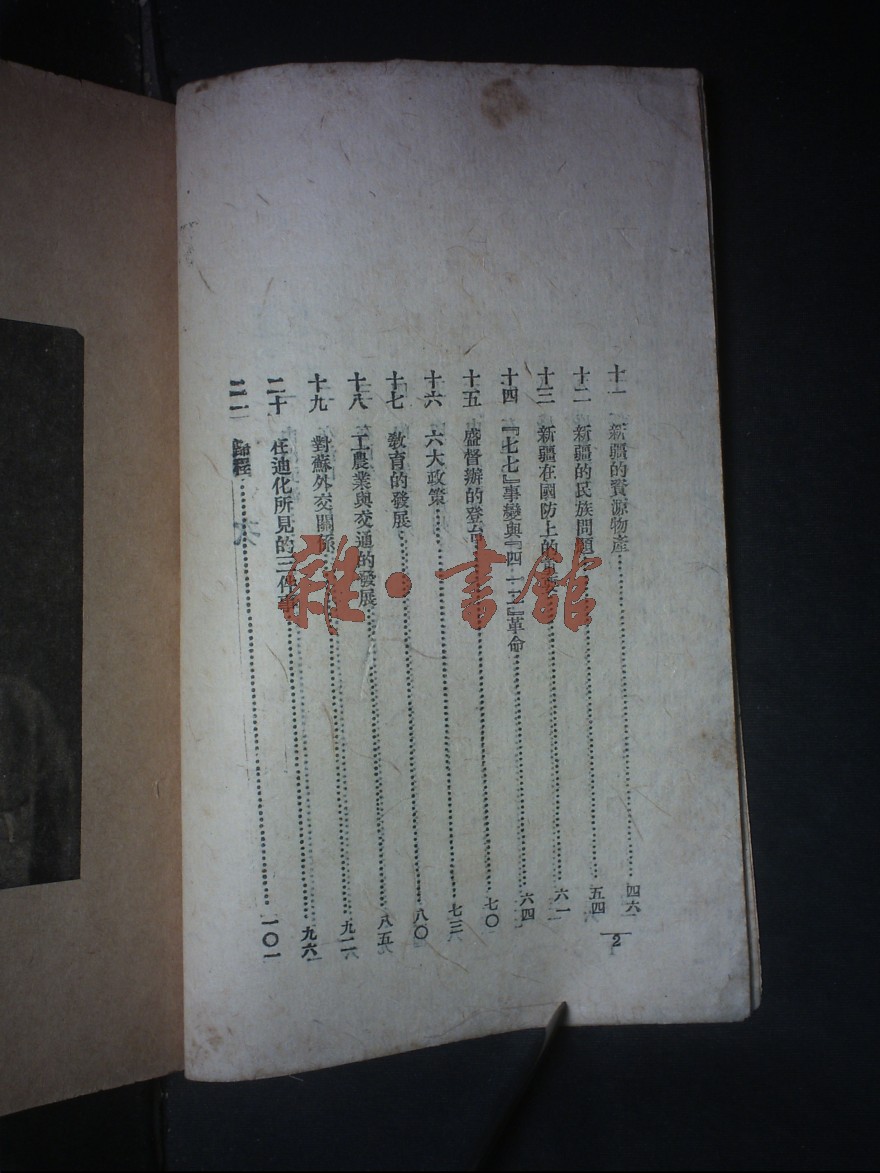 十一 新疆的資源物產……四六
十二 新疆的民族問題……五四
十三 新疆在國防上的……六一
十四 『七七』事變與『四一二』革命……六四
十五 盛督辦的登台……七〇
十六 六大政策……七三
十七 教育的發展……八〇
十八 工農業與交通的發展……八五
十九 對蘇外交關係……九一
二十 在迪化所見的三件事……九六
二一 歸程……一〇一
2
雜·書館